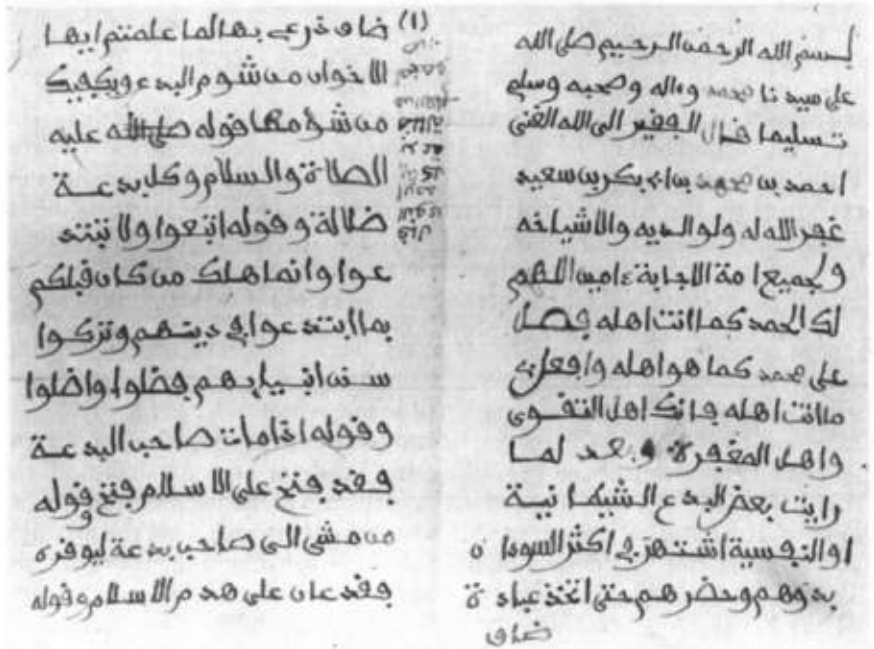 بسم الله الرحمن الرحيم صلى الله
على سيدنا محمد وءاله وصحبه وسلم
تسليما قال الفقير الى الله الغني
احمد بن محمد بن ابي بكر بن سعيد
غفر الله له ولوالديه والاشياخه
ولجميع امة الاجابة ءامين اللهم
لك الحمد كما انت اهله فصل
على محمد كما هو اهله وافعل بي
ما انت اهله فانك اهل التقوى
واهل المغفرة وبعد لما
رايت بعض البدع الشيطانية
اوالنفسية اشتهر في اكثر السودا ن
بدوهم وحضرهم حتى اتخذ عبادة
ضاق
ضاق ذرعي بها لما علمتم ايها (1)
الاخوان من شوم البدع ويكفيك
من شؤمها قوله صلى الله عليه
الصلاة والسلام وكل بدعة
ضلالة وقوله اتبعوا ولا تبتد
عوا وانما هلك من كان قبلكم
بما ابتدعوا في دينهم وتركوا
سنن انبيايهم فضلوا واضلوا
وقوله اذا مات صاحب البدعة
فقد فتح على الاسلام فتح وقوله
من مشى الى صاحب بدعة ليوقره
فقد عان على هدم الاسلام وقوله